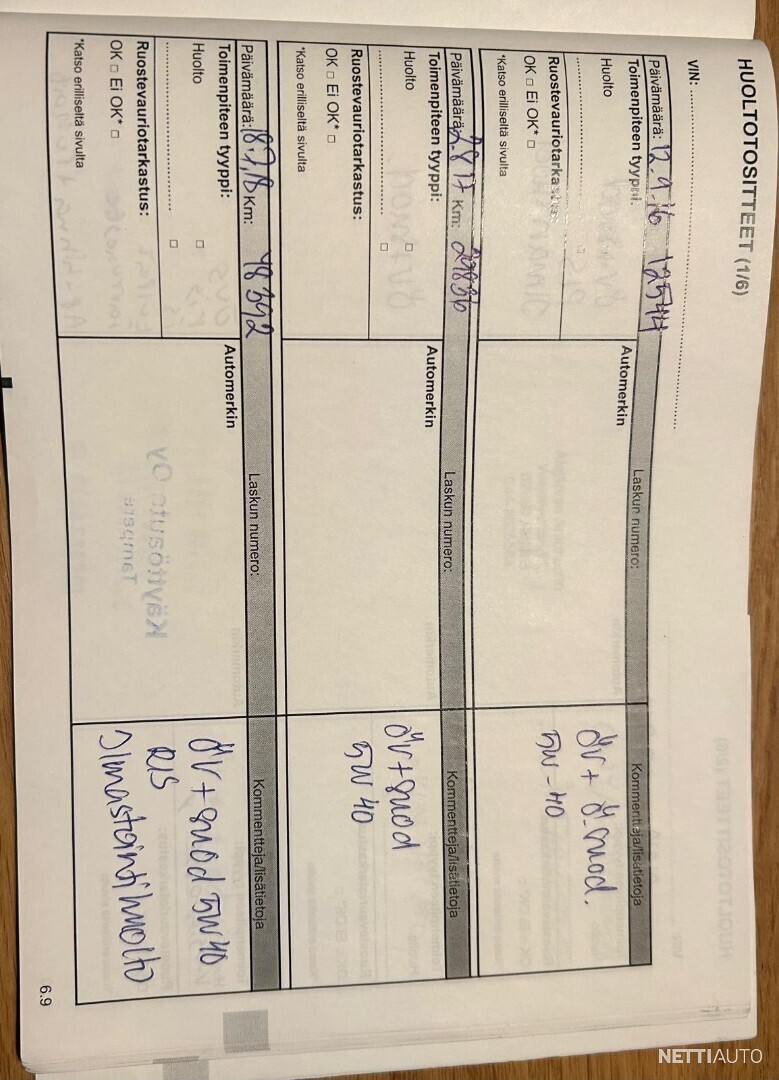 HUOLTOTOSITTEET (1/6)
VIN: ........................................
Päivämäärä: 12.9.16 12544
Laskun numero:
Kommentteja/lisätietoja
Toimenpiteen tyyppi:
Huolto □
Ruostevauriotarkastus:
OK □ Ei OK* □
*Katso erilliseltä sivulta
Automerkin
ÖV + Ö.suod.
5W-40
Päivämäärä: 2.8 17 Km: 29836
Laskun numero:
Kommentteja/lisätietoja
Toimenpiteen tyyppi:
Huolto □
........................................ □
Ruostevauriotarkastus:
OK □ Ei OK* □
*Katso erilliseltä sivulta
Automerkin
ÖV+suod
5W 40
Päivämäärä: 18.7.18 Km: 48392
Laskun numero:
Kommentteja/lisätietoja
Toimenpiteen tyyppi:
Huolto □
........................................ □
Ruostevauriotarkastus:
OK □ Ei OK* □
*Katso erilliseltä sivulta
Automerkin
ÖV + suod 5W 40
RIS
Ilmastointihuolto
6.9
NETTIAUTO